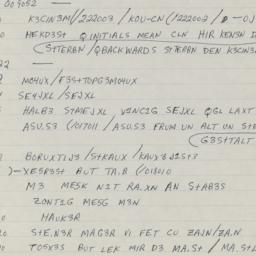 009052 —
K3CIN3M(/222003 / KOU-CN (/222002 / D-OJ
HEKD3ST Q INITIALS MEAN CLN HIR KENSN D
(STERBN / QBACKWARDS STERRN DEN K3CIN3
22 —
MO4UX / F3STTOPG3MO4UX
SE4JXL / SEJXL
HALB3 STMEJXL, VINCIG SEJXL QGL LAXT
ASU.S3 (/017011 / ASU.S3 FRUM UN ALT UN STE
(G3STTALT
BORUXTIJ3 / STKAUX / KAUX3JIST3
)-XESP3ST BUT TA.B (/018010
M3 MESK NIT RA.XN AN STAB3S
ZONTIG MESG M3N
HAUK3R
STE.N3R MAG3R VI FET CU ZAIN/ZA.N
TOSX3S BUT LEK MIR D3 MA.ST / MA.STL